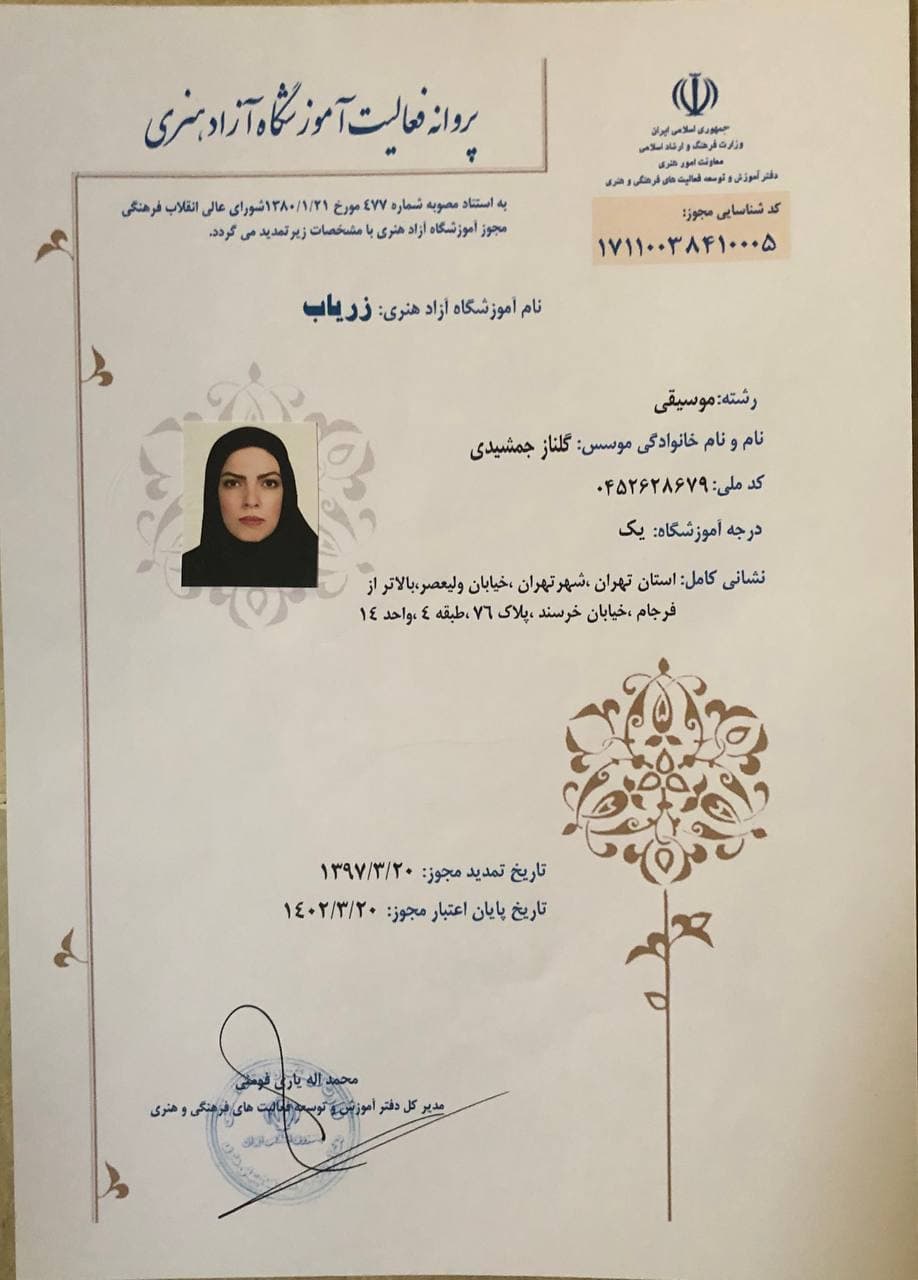 جمهوری اسلامی ایران
وزارت فرهنگ و ارشاد اسلامی
معاونت امور هنری
دفتر آموزش و توسعه فعالیت های فرهنگی و هنری
کد شناسایی مجوز:
۱۷۱۱۰۰۳۸۴۱۰۰۰۵
پروانه فعالیت آموزشگاه آزاد هنری
به استناد مصوبه شماره ٤٧٧ مورخ ۱۳۸۰/۱/۲۱شورای عالی انقلاب فرهنگی
مجوز آموزشگاه آزاد هنری با مشخصات زیر تمدید می گردد.
نام آموزشگاه آزاد هنری: زریاب
رشته:موسیقی
نام و نام خانوادگی موسس: گلناز جمشیدی
کد ملی: ۰۴۵۲۶۲۸۶۷۹
درجه آموزشگاه: یک
نشانی کامل: استان تهران ،شهرتهران ،خیابان ولیعصر،بالاتر از
فرجام ،خیابان خرسند ،پلاک ٧٦ ،طبقه ٤ ،واحد ١٤
تاریخ تمدید مجوز: ۱۳۹۷/۳/۲۰
تاریخ پایان اعتبار مجوز: ١٤٠٢/٣/٢٠
محمد اله یاری فومنی
مدیر کل دفتر آموزش و توسعه فعالیت های فرهنگی و هنری